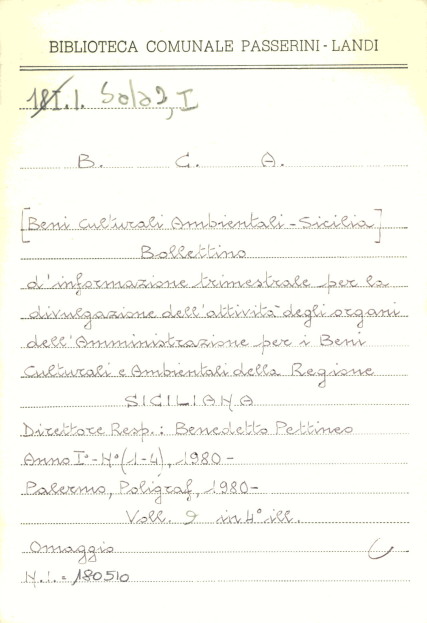 BIBLIOTECA COMUNALE PASSERINI - LANDI
18I.1. Sala 2, I
B. C. A.
[Beni Culturali Ambientali - Sicilia]
Bollettino
d'informazione trimestrale per la
divulgazione dell'attività degli organi
dell'Amministrazione per i Beni
Culturali e Ambientali della Regione
SICILIANA
Direttore Resp.: Benedetto Pettineo
Anno I° - N° (1-4), 1980 -
Palermo, Poligraf, 1980 -
Voll. 9 in 4° ill.
Omaggio C
N.i. = 180510